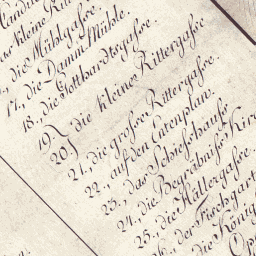 kleine Rit
die Mühlgasse.
17., die Damm Mühle.
18., die Gotthardtsgasse.
19.) die kleine Rittergasse.
20.)
21., die grosse Rittergasse.
22., auf den Entenplan.
23., das Schiesshauss
24., die Begräbniss Kir
25., die Hältergasse.
der Fischgart
die König